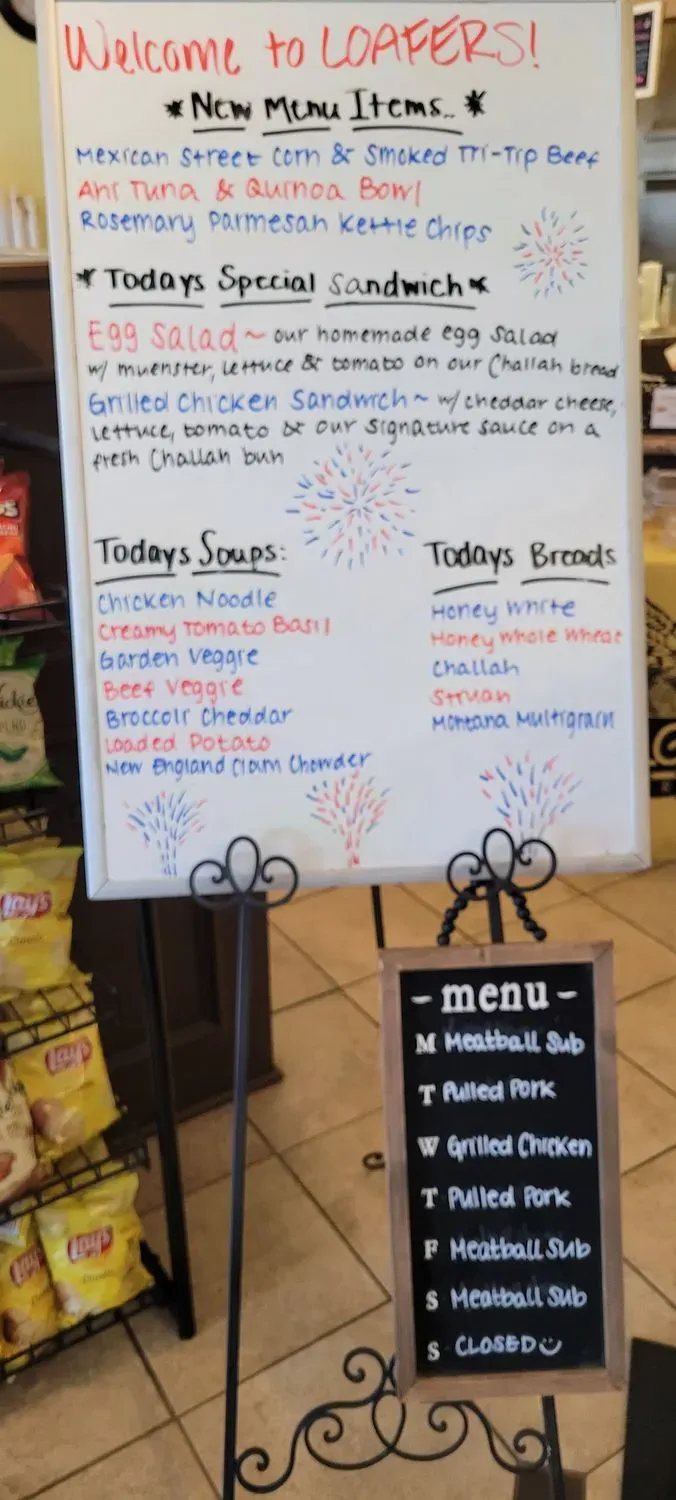 Welcome to LOAFERS!
* New Menu Items.. *
Mexican Street Corn & Smoked Tri-Tip Beef
Ahi Tuna & Quinoa Bowl
Rosemary Parmesan Kettle Chips
* Todays Special Sandwich *
Egg Salad ~ our homemade egg salad
w/ muenster, lettuce & tomato on our Challah bread
Grilled Chicken Sandwich ~ w/ cheddar cheese,
lettuce, tomato & our signature sauce on a
fresh Challah bun
Todays Soups:
Chicken Noodle
Creamy Tomato Basil
Garden Veggie
Beef Veggie
Broccoli Cheddar
Loaded Potato
New England Clam Chowder
Todays Breads
Honey White
Honey Whole Wheat
Challah
Struan
Montana Multigrain
- menu -
M Meatball Sub
T Pulled Pork
W Grilled Chicken
T Pulled Pork
F Meatball Sub
S Meatball Sub
S CLOSED
Lay's
Lay's
Lay's
Lay's